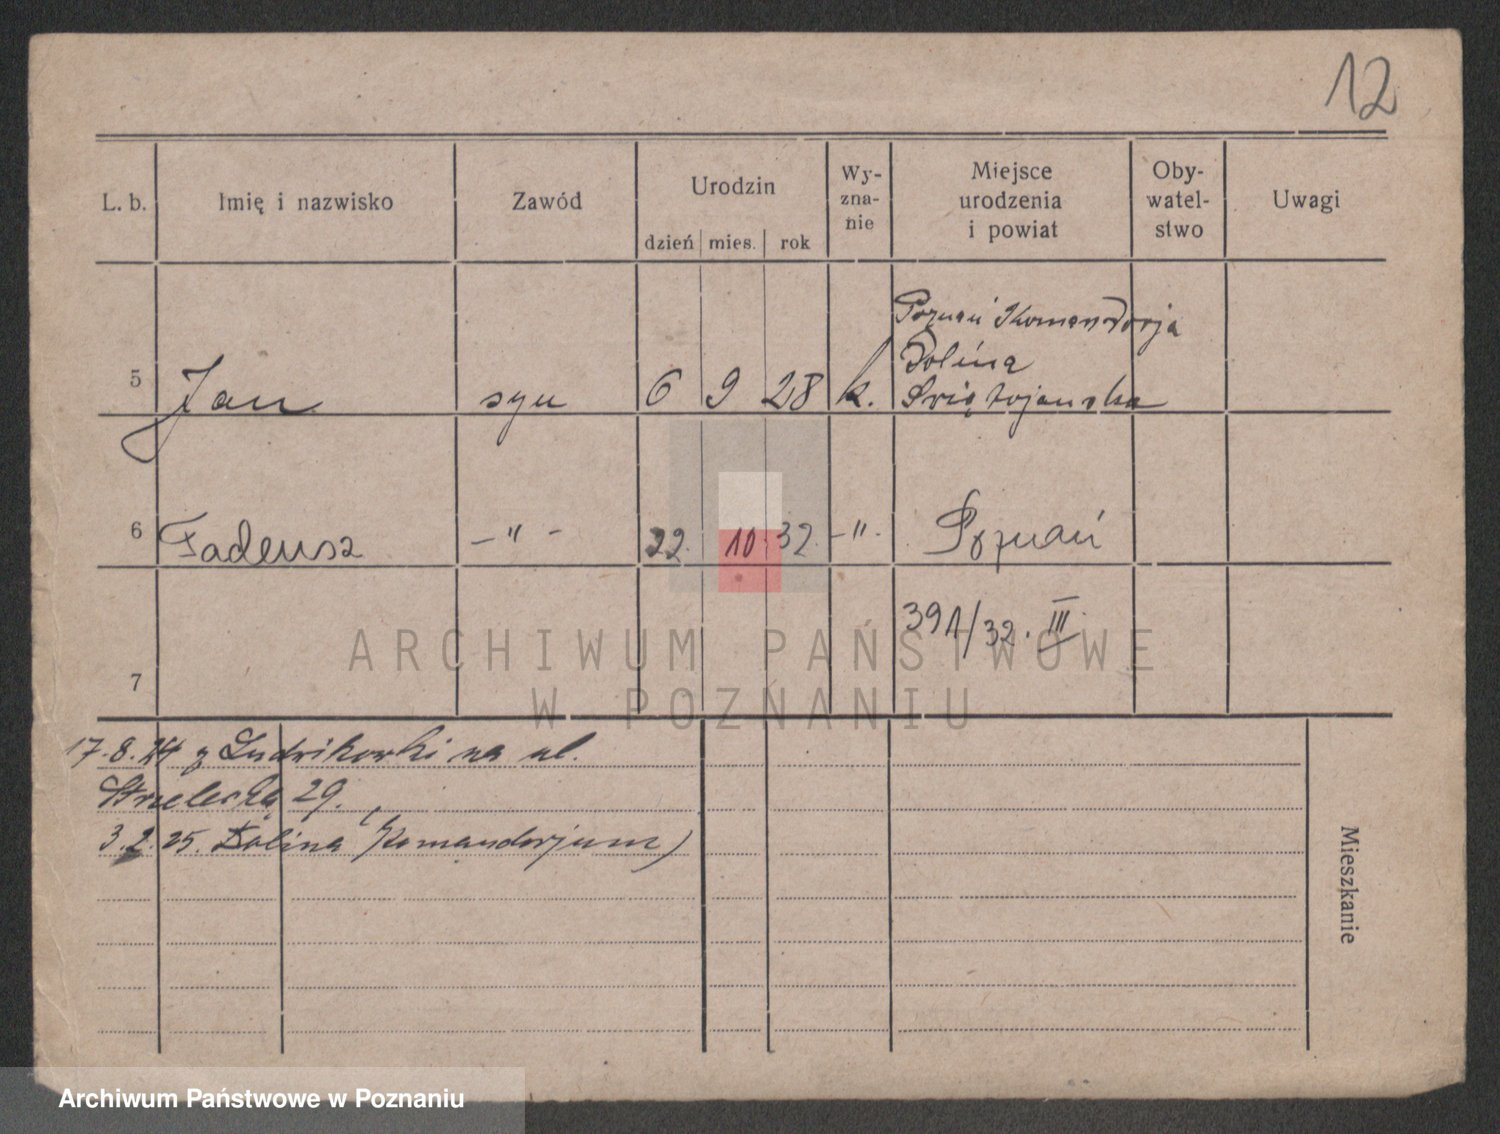 12
L. b. Imię i nazwisko Zawód Urodzin dzień mies. rok Wy-zna-nie Miejsce urodzenia i powiat Oby-watel-stwo Uwagi
Poznań Komandorja
Dolina
5 Jan syn 6 9 28 k. Świętojańska
6 Tadeusz -"- 22. 10. 32. -"- Poznań
391/32. III
7
17.8.24 z Ludwikowki na ul.
Strzelecką 29.
3.2.25. Dolina (Komandorjum)
Mieszkanie
ARCHIWUM PAŃSTWOWE
W POZNANIU
Archiwum Państwowe w Poznaniu